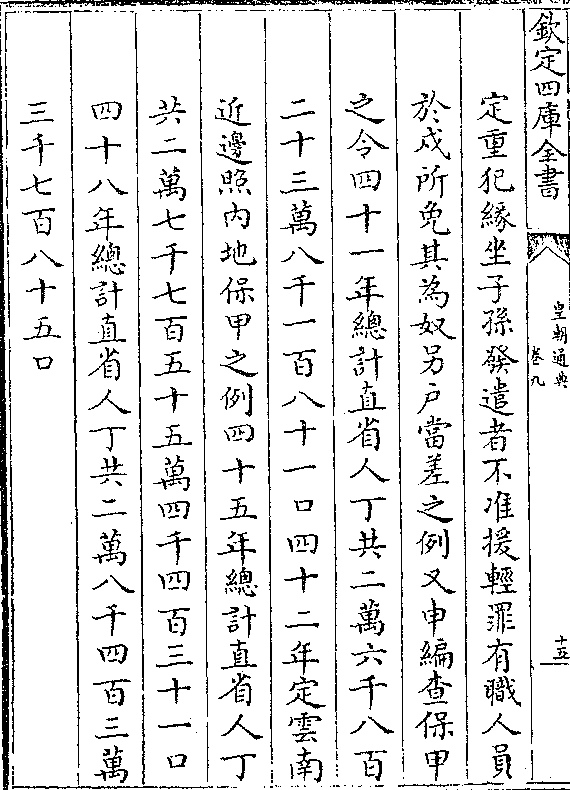 欽定四庫全書
皇朝通典
卷九
十五
定重犯緣坐子孫發遣者不准援輕罪有職人員
於戍所免其為奴另户當差之例又申編查保甲
之令四十一年總計直省人丁共二萬六千八百
二十三萬八千一百八十一口四十二年定雲南
近邊照内地保甲之例四十五年總計直省人丁
共二萬七千七百五十五萬四千四百三十一口
四十八年總計直省人丁共二萬八千四百三萬
三千七百八十五口